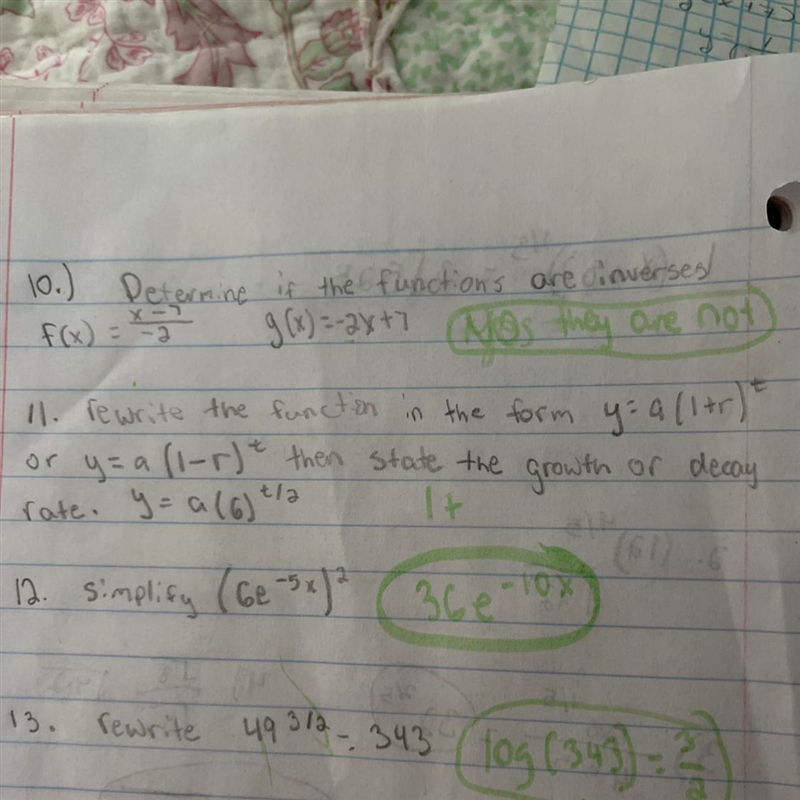 10.) Determine if the functions are inverses
f(x) = x-7/-2 g(x)=-2x+7 they are not
11. rewrite the function in the form y=a(1+r)^t
or y=a(1-r)^t then state the growth or decay
rate. y=a(6)^t/2 1+
12. simplify (6e^-5x)^2 36e^-10x
13. rewrite 49^3/2 = 343 log(343) = 3/2